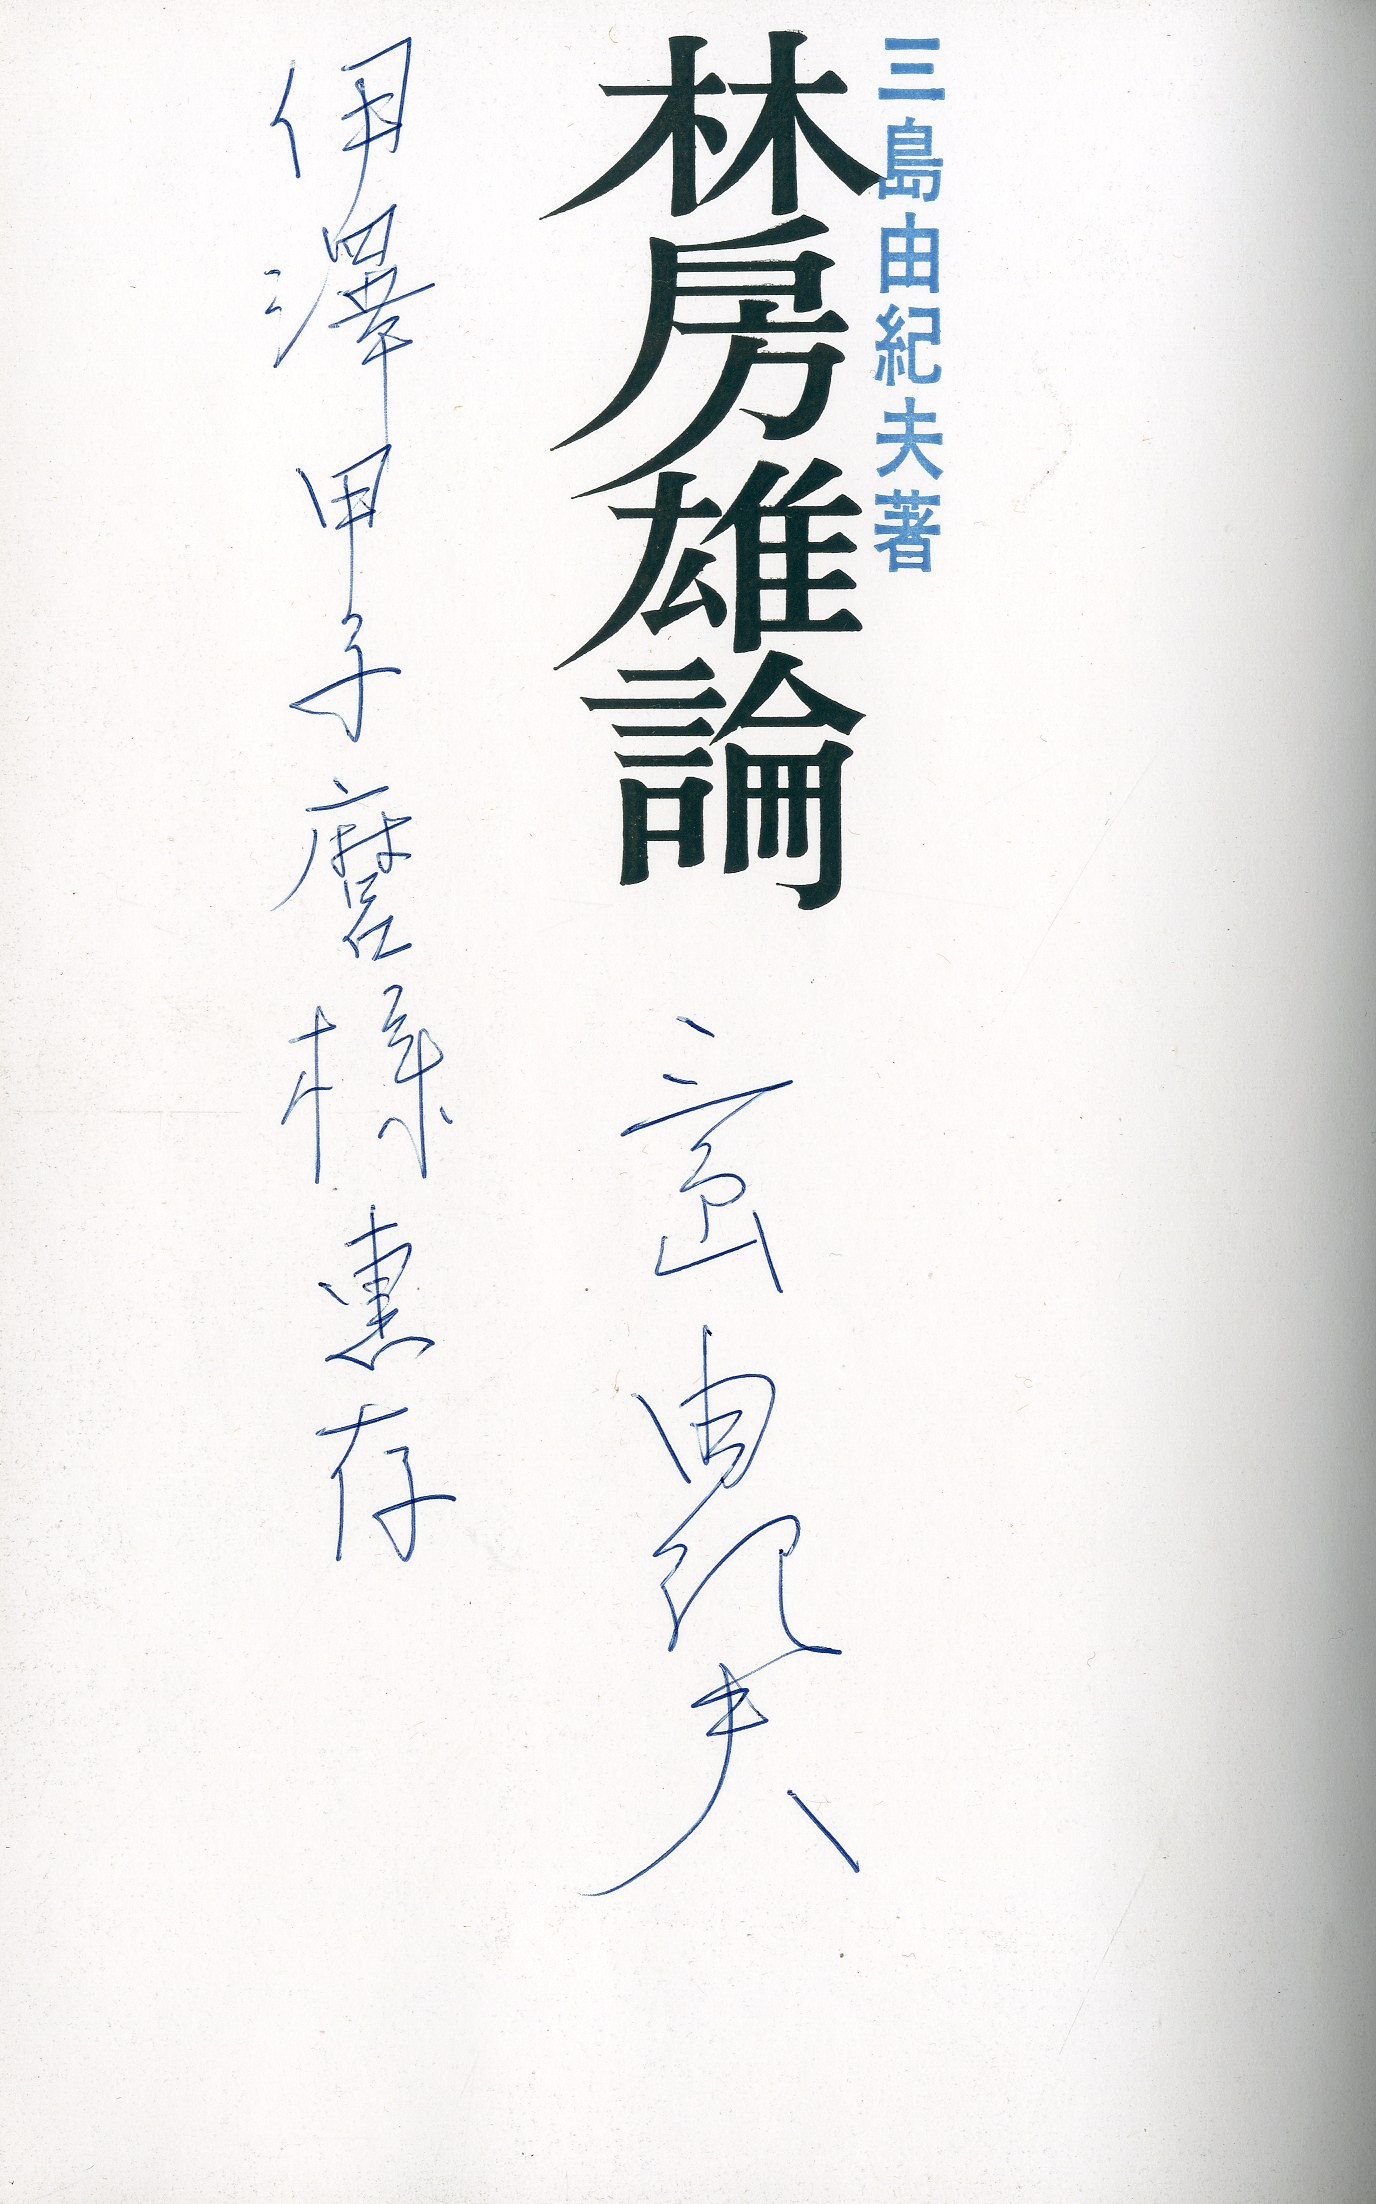 三島由紀夫著
林房雄論
三島由紀夫
伊澤甲子麿様恵存